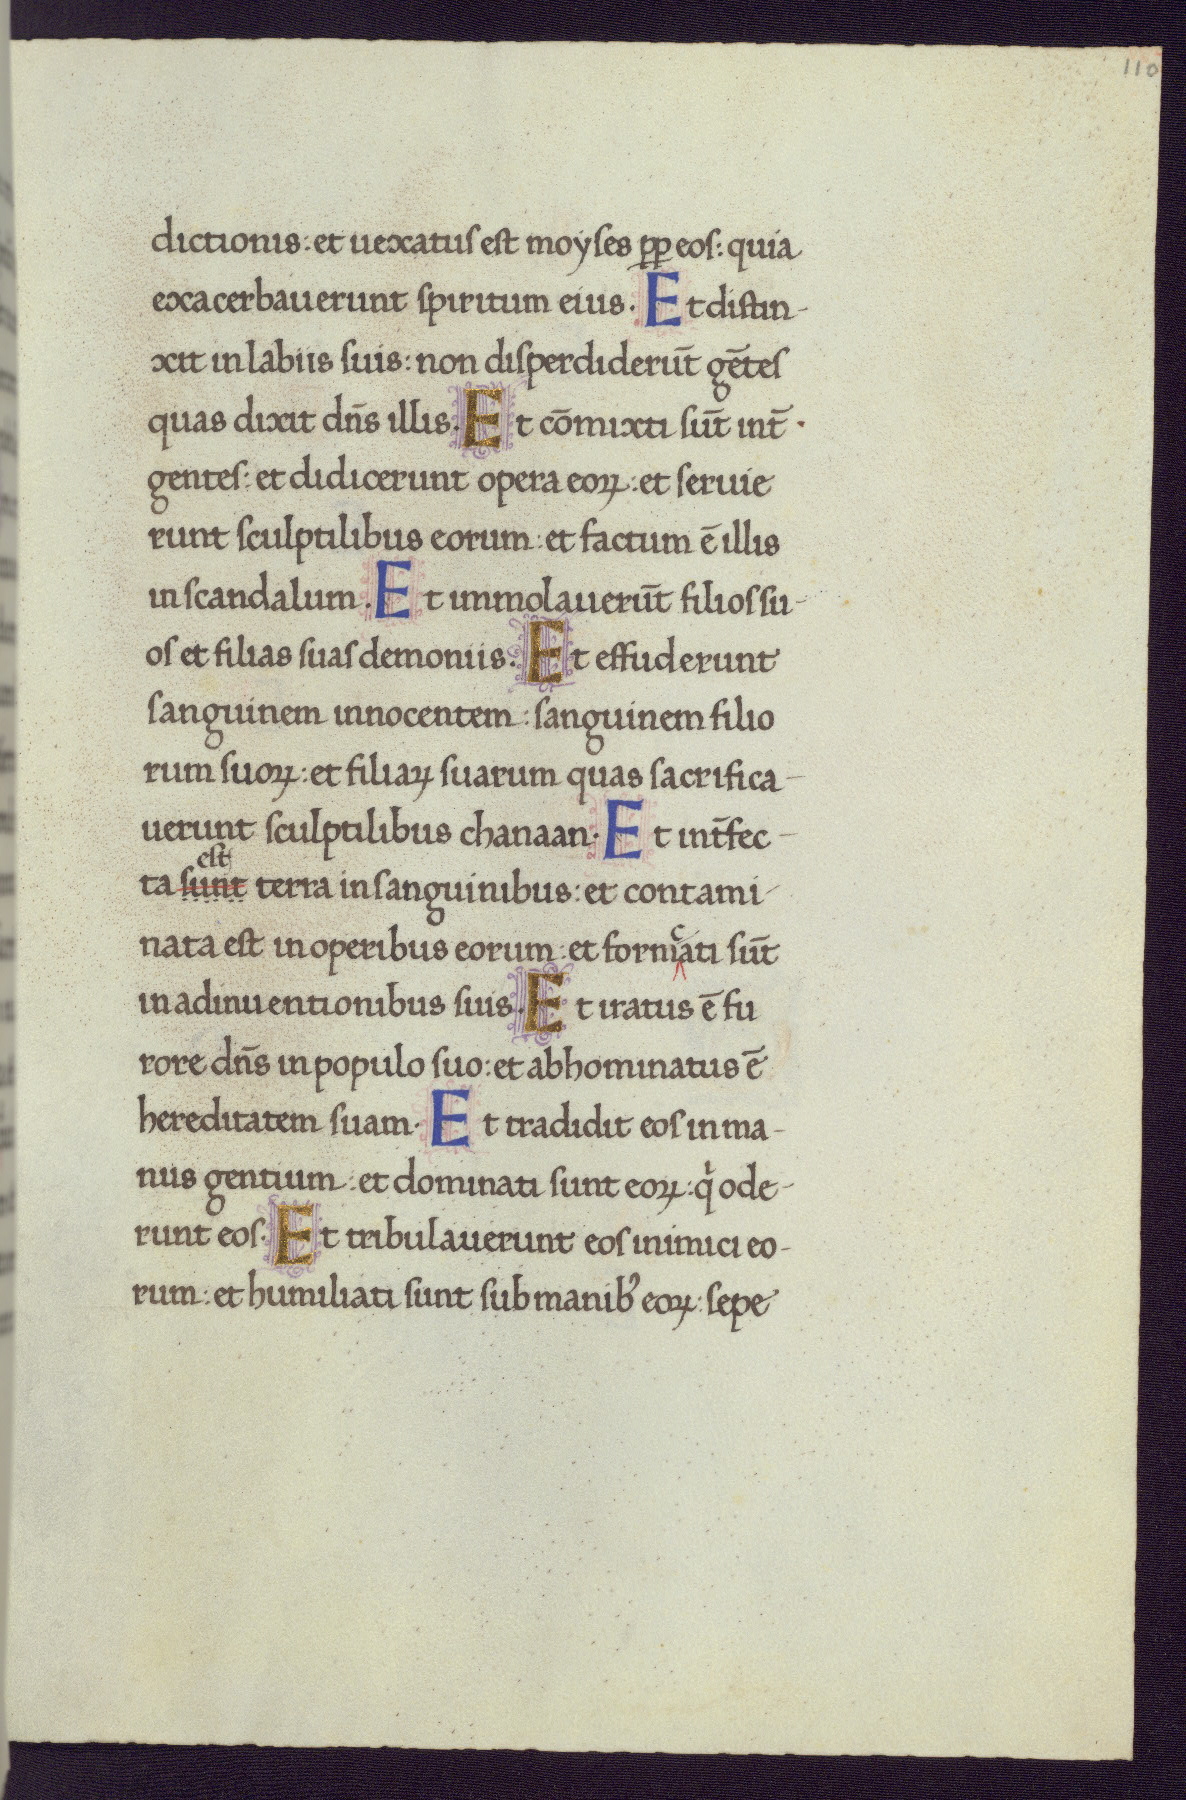 110
dictionis: et uexatus est moyses ꝓp eos: quia
exacerbauerunt spiritum eius. Et distin-
xit in labiis suis: non disperdiderūt gētes
quas dixit dn̄s illis. Et cōmixti sūt int̄
gentes: et didicerunt opera eoꝝ: et seruie
runt sculptilibus eorum: et factum ē illis
in scandalum. Et immolauerūt filios su-
os et filias suas demoniis: Et effuderunt
sanguinem innocentem: sanguinem filio
rum suoꝝ: et filiaꝝ suarum quas sacrifica-
uerunt sculptilibus chanaan. Et int̄fec-
est
ta sunt terra in sanguinibus: et contami-
nata est in operibus eorum: et forniᶜati sūt
in adinuentionibus suis. Et iratus ē fu
rore dn̄s in populo suo: et abhominatus ē
hereditatem suam. Et tradidit eos in ma-
nus gentium: et dominati sunt eoꝝ: qͥ ode-
runt eos. Et tribulauerunt eos inimici eo-
rum: et humiliati sunt sub manibꝰ eoꝝ: sepe